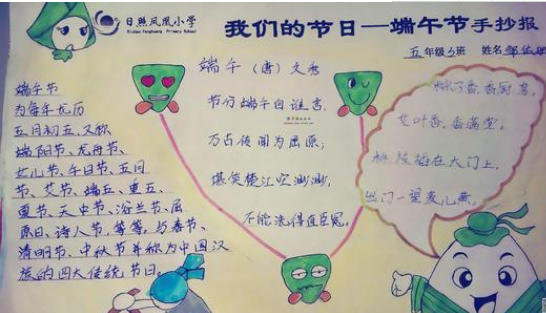 日照凤凰小学
Rizhao Fenghuang Primary School
我们的节日—端午节手抄报
五年级3班 姓名
端午节
为每年农历
五月初五,又称
端阳节、龙舟节、
女儿节、午日节、五月
节、艾节、端五、重五、
夏节、天中节、浴兰节、屈
原日、诗人节,等等。与春节、
清明节、中秋节并称为中国汉
族的四大传统节日。
端午 (唐) 文秀
节分端午自谁言,
万古传闻为屈原;
堪笑楚江空渺渺,
不能洗得直臣冤。
粽子香,香厨房,
艾叶香,香满堂。
桃枝插在大门上,
出门一望麦儿黄。